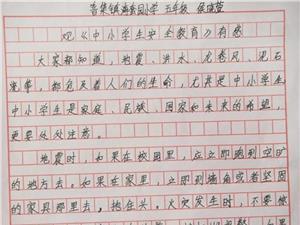 镇海夜园小学 五年级
观《中小学生安全教育》有感
大家都知道，地震、洪水、龙卷风、泥石
流等，都危及着人们的生命，尤其是中小学生
中小学生是家庭、民族、国家和未来的希望，
更要处处注意。
地震时，如果在校园里，应立即跑到空旷
的地方去。如果在家里，立即到墙角或者坚固
的家具那里去，抱住头。火灾发生时，不要惊